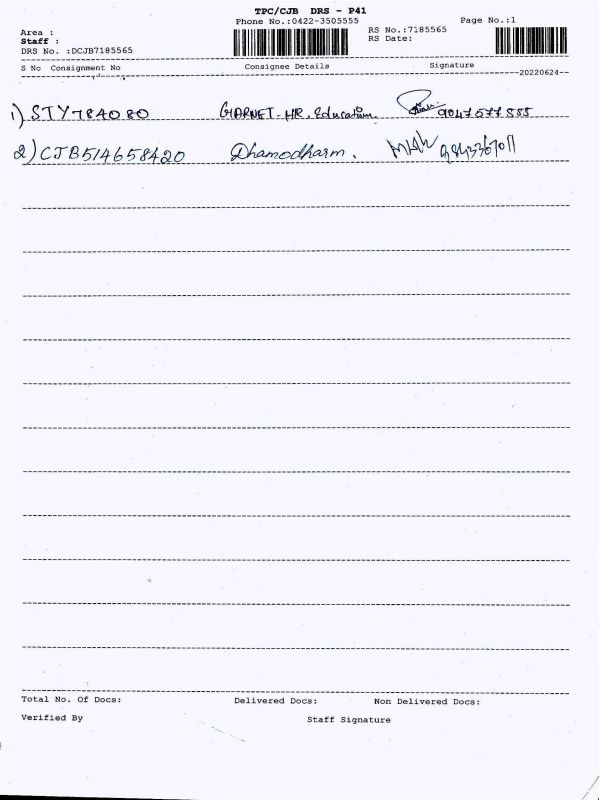 TPC/CJB DRS - P41
Phone No.:0422-3505555 Page No.:1
Area : RS No.:7185565
Staff : RS Date:
DRS No. :DCJB7185565
S No Consignment No Consignee Details Signature
20220624
1) STY784080 GARNET-HR. Education 9047577555
2) CJB514658420 Dhamodharm.
Total No. Of Docs: Delivered Docs: Non Delivered Docs:
Verified By Staff Signature